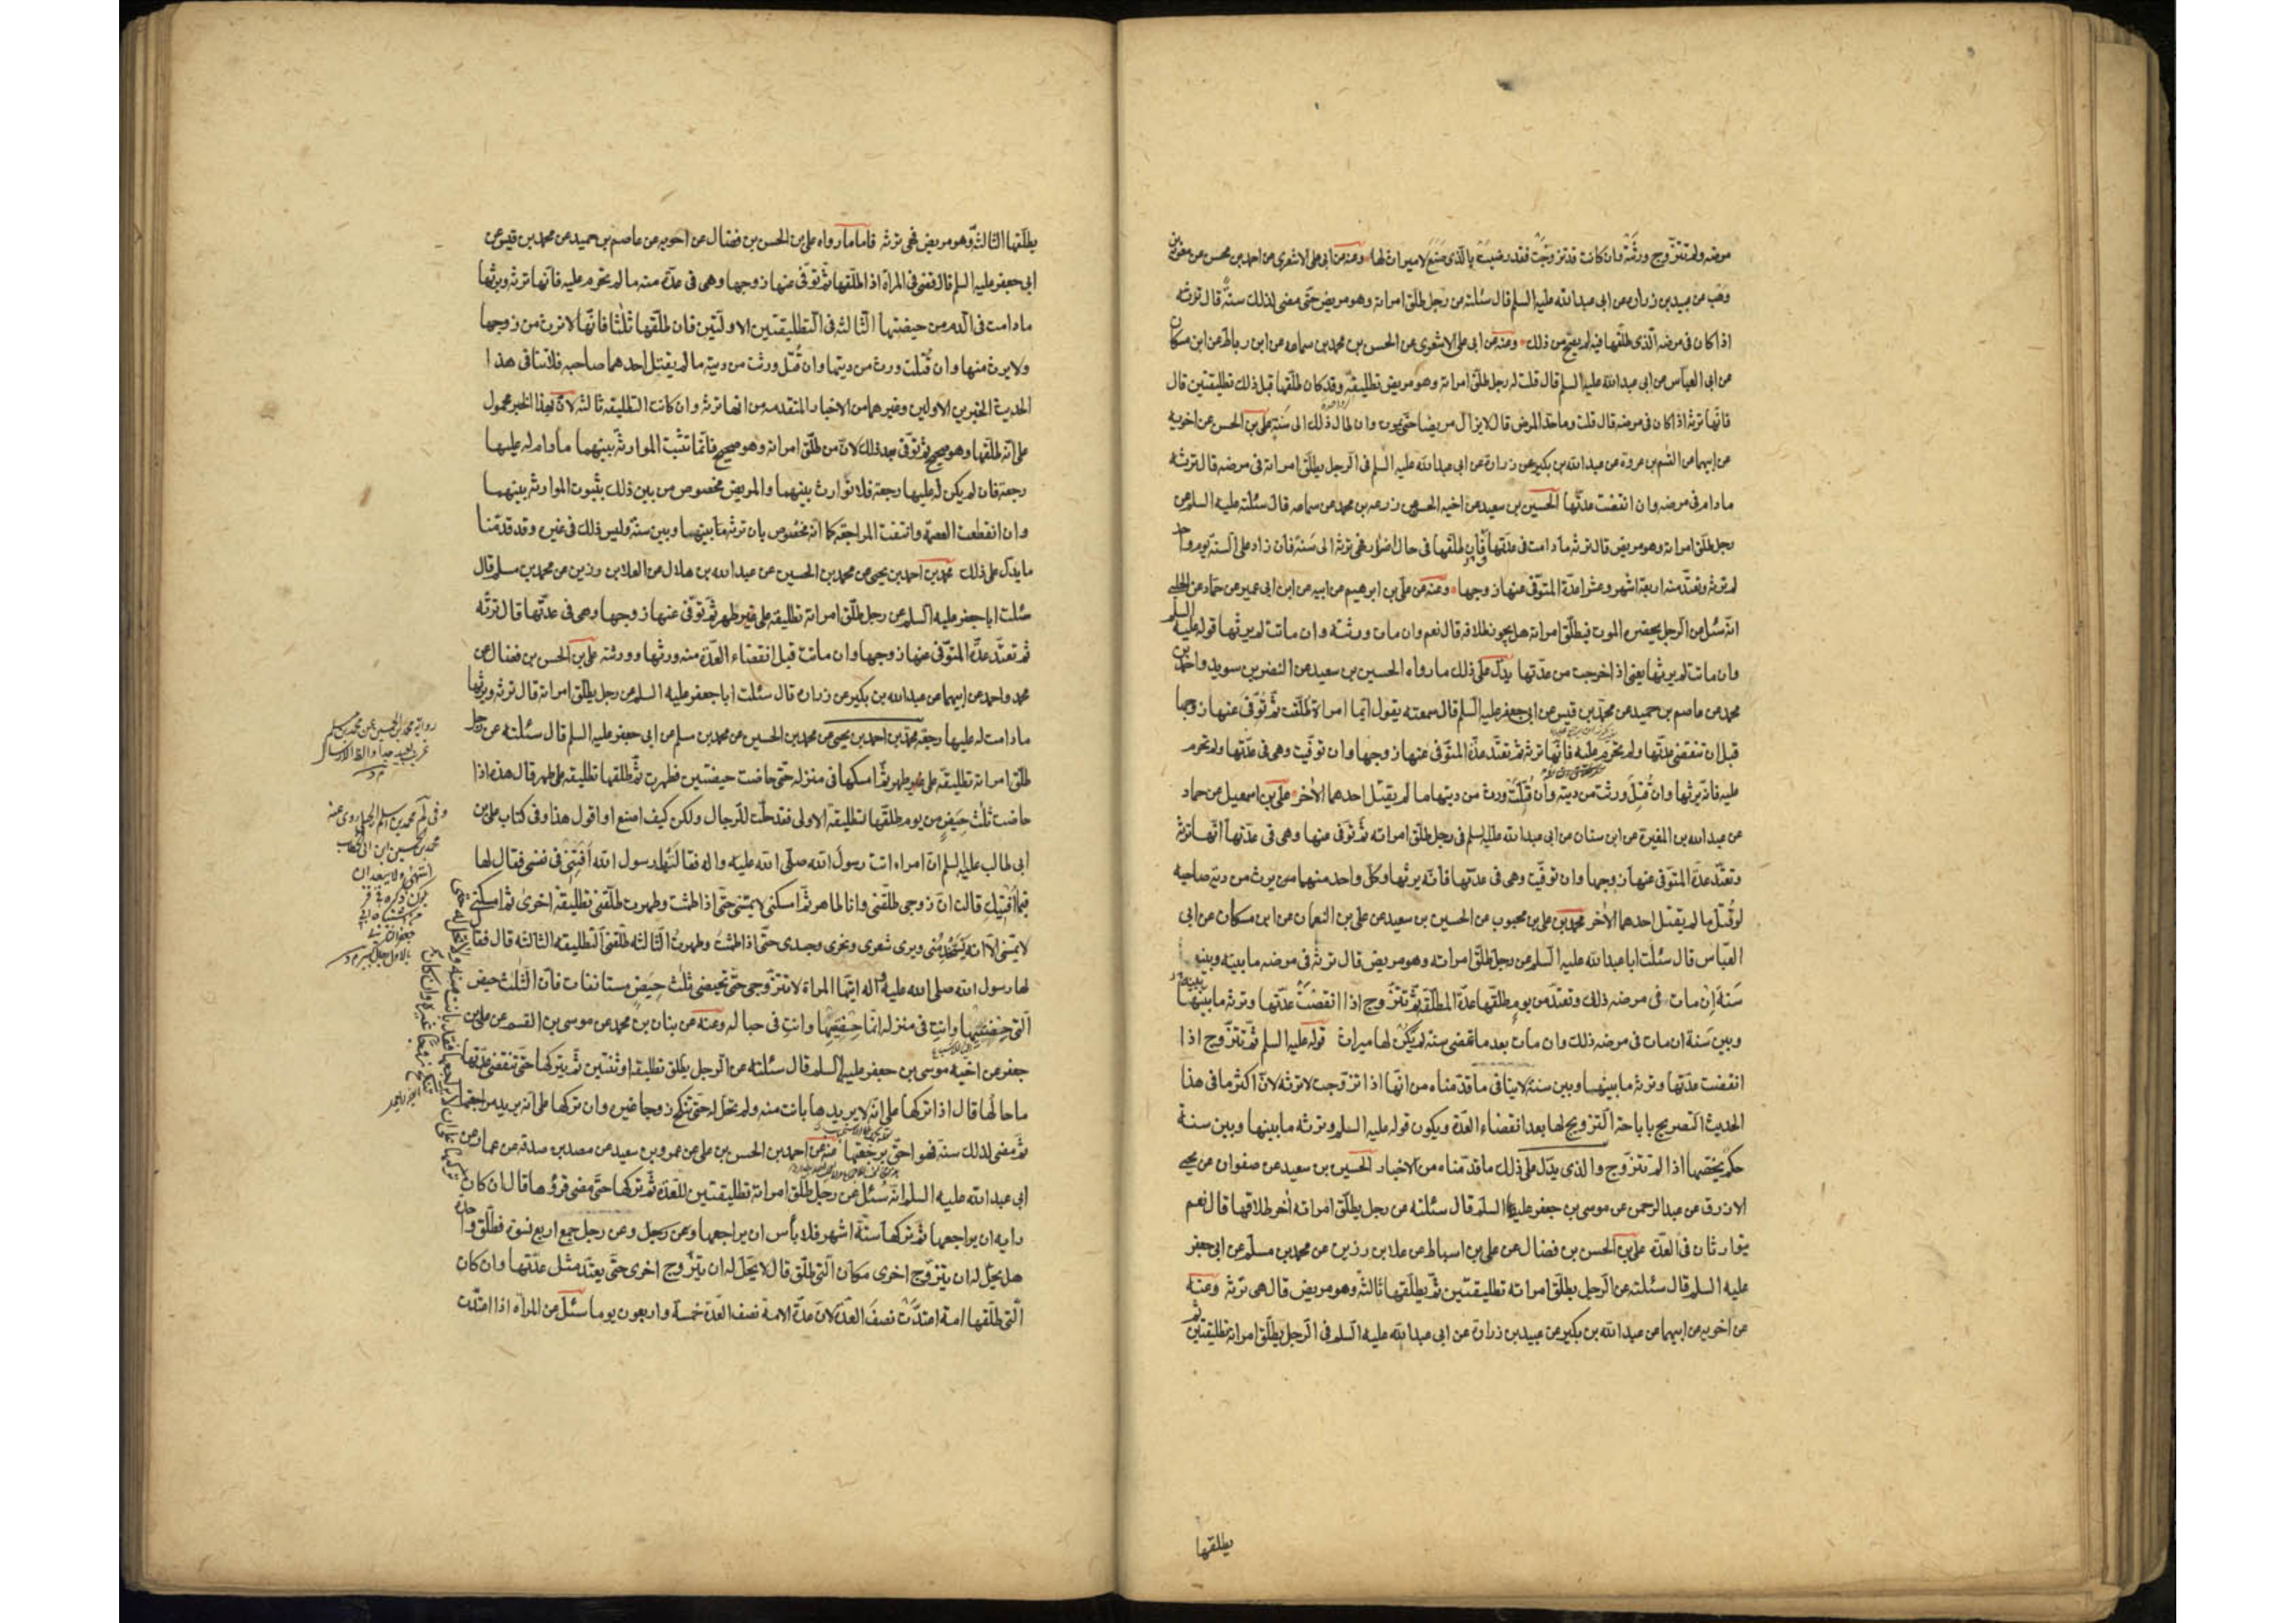 مرضه ولم تتزوج ورثته وان كانت قد تزوجت فقد رضيت بالذى صنع لا ميراث لها وعنه عن ابى على الاشعرى عن احمد بن محسن عن معوية بن
وهب عن عبيد بن زرارة عن ابى عبد الله عليه السلم قال سئلته عن رجل طلق امراته وهو مريض حتى مضى لذلك سنة قال ترثه
اذا كان فى مرضه الذى طلقها فيه لم يصح من ذلك وعنه عن ابى على الاشعرى عن الحسن بن محمد بن سماعه عن ابن رباط عن ابن مسكان
عن ابى العباس عن ابى عبد الله عليه السلم قال قلت له رجل طلق امراته وهو مريض تطليقة وقد كان طلقها قبل ذلك تطليقتين قال
فانها ترثه اذا كان فى مرضه قال قلت وما حد المرض قال لا يزال مريضا حتى يموت وان طال ذلك الى سنة على بن الحسن عن اخويه
عن ابيهما عن القسم بن عروة عن عبد الله بن بكير عن زرارة عن ابى عبد الله عليه السلم فى الرجل يطلق امراته فى مرضه قال ترثه
ما دام فى مرضه وان انقضت عدتها الحسين بن سعيد عن اخيه الحسن عن زرعه بن محمد عن سماعه قال سئلته عليه السلم عن
رجل طلق امراته وهو مريض قال ترثه ما دامت فى عدتها فان طلقها فى حال اضرار فهى ترثه الى سنة فان زاد على السنة يوم واحد
لم ترثه وتعتد منه اربعة اشهر وعشرا عدة المتوفى عنها زوجها وعنه عن على بن ابرهيم عن ابيه عن ابن ابى عمير عن حماد عن الحلبى
انه سئل عن الرجل يحضره الموت فيطلق امراته هل يجوز طلاقه قال نعم وان مات ورثته وان ماتت لم يرثها قوله عليه السلم
وان ماتت لم يرثها يعنى اذا خرجت من عدتها يدل على ذلك ما رواه الحسين بن سعيد عن النضر بن سويد واحمد بن
محمد عن عاصم بن حميد عن محمد بن قيس عن ابى جعفر عليه السلم قال سمعته يقول ايما امراة طلقت ثم توفى عنها زوجها
قبل ان تنقضى عدتها ولم تحرم عليه فانها ترثه ثم تعتد عدة المتوفى عنها زوجها وان توفيت وهى فى عدتها ولم تحرم
عليه فانه يرثها وان قتل ورثت من ديته وان قتلت ورث من ديتها ما لم يقتل احدهما الاخر على بن اسمعيل عن حماد
عن عبد الله بن المغيرة عن ابن سنان عن ابى عبد الله عليه السلم فى رجل طلق امراته ثم توفى عنها وهى فى عدتها انها ترثه
وتعتد عدة المتوفى عنها زوجها وان توفيت وهى فى عدتها فانه يرثها وكل واحد منهما يرث من دية صاحبه
لو قتل ما لم يقتل احدهما الاخر محمد بن على بن محبوب عن الحسين بن سعيد عن على بن النعمان عن ابن مسكان عن ابى
العباس قال سئلت ابا عبد الله عليه السلم عن رجل طلق امراته وهو مريض قال ترثه فى مرضه ما بينه وبين
سنة ان مات فى مرضه ذلك وتعتد من يوم طلقها عدة المطلقة ثم تتزوج اذا انقضت عدتها وترثه ما بينها
وبين سنة ان مات فى مرضه ذلك وان مات بعد ما تمضى سنة لم يكن لها ميراث قوله عليه السلم ثم تتزوج اذا
انقضت عدتها وترثه ما بينها وبين سنة لا ينافى ما قدمناه من انها اذا تزوجت لا ترثه لان اكثر ما فى هذا
الحديث التصريح باباحة التزويج لها بعد انقضاء العدة ويكون قوله عليه السلم وترثه ما بينها وبين سنة
حكم يخصها اذا لم تتزوج والذى يدل على ذلك ما قدمناه من الاخبار الحسين بن سعيد عن صفوان عن يحيى
الازرق عن عبد الرحمن عن موسى بن جعفر عليه السلم قال سئلته عن رجل يطلق امراته اخر طلاقها قال نعم
يتوارثان فى العدة على بن الحسن بن فضال عن على بن اسباط عن علا بن رزين عن محمد بن مسلم عن ابى جعفر
عليه السلم قال سئلته عن الرجل يطلق امراته تطليقتين ثم يطلقها ثالثة وهو مريض قال هى ترثه وعنه
عن اخويه عن ابيهما عن عبد الله بن بكير عن عبيد بن زرارة عن ابى عبد الله عليه السلم فى الرجل يطلق امراته تطليقتين ثم
يطلقها
يطلقها الثالثة وهو مريض فهى ترثه فاما ما رواه على بن الحسن بن فضال عن اخويه عن عاصم بن حميد عن محمد بن قيس عن
ابى جعفر عليه السلم قال قضى فى المرأة اذا طلقها ثم توفى عنها زوجها وهى فى عدة منه ما لم تحرم عليه فانها ترثه ويرثها
ما دامت فى الدم من حيضتها الثالثه فى التطليقتين الاولتين فان طلقها ثلثا فانها لا ترث من زوجها
ولا يرث منها وان قتلت ورث من ديتها وان قتل ورثت من ديته ما لم يقتل احدهما صاحبه فلا تنافى هذا
الحديث الخبرين الاولين وغيرهما من الاخبار المتقدمه من انها ترثه وان كانت التطليقه ثالثه لان هذا الخبر محمول
على انه طلقها وهو صحيح ثم توفى بعد ذلك لان من طلق امراته وهو صحيح فانما تثبت الموارثه بينهما ما دام له عليها
رجعة فان لم يكن له عليها رجعة فلا توارث بينهما والمريض مخصوص من بين ذلك بثبوت الموارثه بينهما
وان انقطعت العصمة وانتفت المراجعة كما انه مخصوص بان ترثه ما بينها وبين سنة وليس ذلك فى غيره وقد قدمنا
ما يدل على ذلك محمد بن احمد بن يحيى عن محمد بن الحسين عن عبد الله بن هلال عن العلا بن رزين عن محمد بن مسلم قال
سئلت ابا جعفر عليه السلم عن رجل طلق امراته تطليقه على غير طهر ثم توفى عنها زوجها وهى فى عدتها قال ترثه
ثم تعتد عدة المتوفى عنها زوجها وان ماتت قبل انقضاء العدة منه ورثها وورثته على بن الحسن بن فضال عن
محمد واحمد عن ابيهما عن عبد الله بن بكير عن زرارة قال سئلت ابا جعفر عليه السلم عن رجل يطلق امراته قال ترثه ويرثها
ما دامت له عليها رجعة محمد بن احمد بن يحيى عن محمد بن الحسين عن محمد بن مسلم عن ابى جعفر عليه السلم قال سئلته عن رجل
طلق امراته تطليقه على غير طهر ثم امسكها فى منزله حتى حاضت حيضتين فطهرت ثم طلقها تطليقه على طهر قال هذه اذا
حاضت ثلث حيض من يوم طلقها التطليقة الاولى فقد حلت للرجال ولكن كيف اصنع او اقول هذا وفى كتاب على بن
ابى طالب عليه السلم ان امراة اتت رسول الله صلى الله عليه واله فقالت يا رسول الله افتنى فى نفسى فقال لها
فيما افتيك قالت ان زوجى طلقنى وانا طاهر ثم امسكنى لا يمسنى حتى اذا طمثت وطهرت طلقنى تطليقة اخرى ثم امسكنى
لا يمسنى الا انه يستخدمنى ويرى شعرى ونحرى وجسدى حتى اذا طمثت وطهرت الثالثه طلقنى التطليقه الثالثه قال فقال
لها رسول الله صلى الله عليه واله ايتها المراة لا تتزوجى حتى تحيضى ثلث حيض مستانفات فان الثلث حيض
التى حضتيها وانت فى منزله انما حضتيها وانت فى حباله وعنه عن بنان بن محمد عن موسى بن القسم عن على بن
جعفر عن اخيه موسى بن جعفر عليه السلم قال سئلته عن الرجل يطلق تطليقه او ثنتين ثم يتركها حتى تنقضى عدتها
ما حالها قال اذا تركها على انه لا يريدها بانت منه ولم تحل له حتى تنكح زوجا غيره وان تركها على انه يريد مراجعتها
ثم مضى لذلك سنة فهو احق برجعتها عنه عن احمد بن الحسن بن على عن عمرو بن سعيد عن مصدق بن صدقه عن عمار عن
ابى عبد الله عليه السلم انه سئل عن رجل طلق امراته تطليقتين للعدة ثم تركها حتى مضى قرؤها قال ان كان
رايه ان يراجعها ثم تركها ستة اشهر فلا بأس ان يراجعها وعن رجل وعن رجل جمع اربع نسوة فطلق واحدة
هل يحل له ان يتزوج اخرى مكان التى طلق قال لا يحل له ان يتزوج اخرى حتى يعتد مثل عدتها وان كان
التى طلقها امة اعتدت نصف العدة لان عدة الامة نصف العدة خمسة واربعون يوما سئل عن المرأة اذا اعتدت
رواية محمد بن الحسين عن محمد بن مسلم